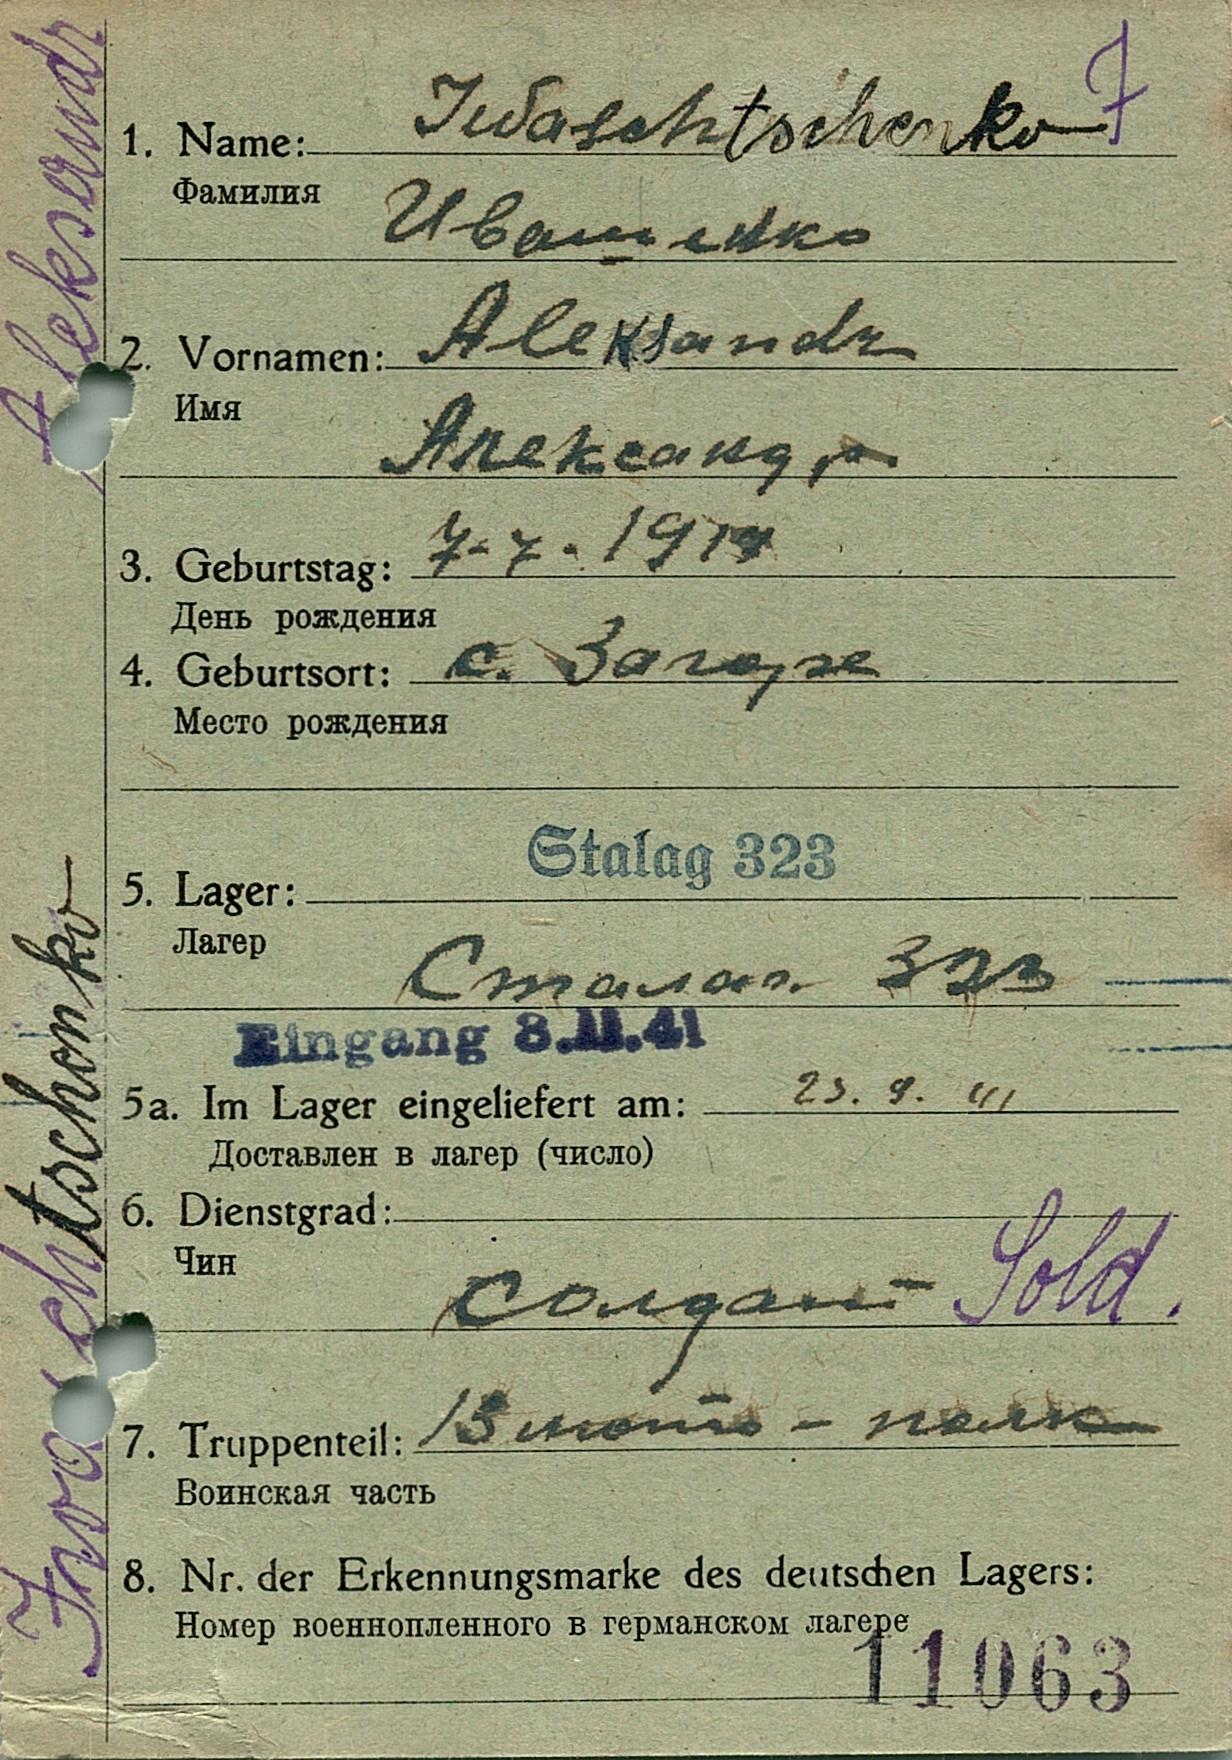 Aleksandr
Iwaschtschonko
J
1. Name: Iwaschtschenko
Фамилия
Иващенко
2. Vornamen: Aleksandr
Имя
Александр
3. Geburtstag: 7.7.1914
День рождения
4. Geburtsort: с. Загорье
Место рождения
Stalag 323
5. Lager:
Лагер
Сталаг 323
Eingang 8.11.41
5a. Im Lager eingeliefert am: 23. 9. 41
Доставлен в лагер (число)
6. Dienstgrad:
Чин
солдат Sold.
7. Truppenteil: 13 мото-полк
Воинская часть
8. Nr. der Erkennungsmarke des deutschen Lagers:
Номер военнопленного в германском лагере
11063